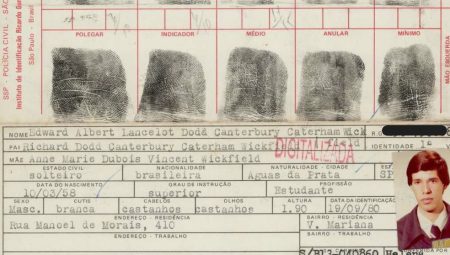 SSP - POLÍCIA CIVIL - SÃO
Instituto de Identificação Ricardo Gu
São Paulo - Brasil
POLEGAR INDICADOR MÉDIO ANULAR MÍNIMO
MÃO ESQUERDA
NOME Edward Albert Lancelot Dodd Canterbury Caterham Wick
PAI Richard Dodd Canterbury Caterham Wickfield IDENTIDADE 1ª
MÃE Anne Marie Dubois Vincent Wickfield
DIGITALIZADA
ESTADO CIVIL NACIONALIDADE NATURALIDADE - CIDADE ESTADO
solteiro brasileira Aguas da Prata SP
DATA DO NASCIMENTO GRAU DE INSTRUÇÃO PROFISSÃO
10/03/58 superior Estudante
SEXO CUTIS CABELOS OLHOS ALTURA DATA
Masc. branca castanhos castanhos 1.90 19/09/80
ENDEREÇO - RESIDÊNCIA BAIRRO - RESIDÊNCIA
Rua Manoel de Morais, 410 V. Mariana
ENDEREÇO - TRABALHO BAIRRO - TRABALHO